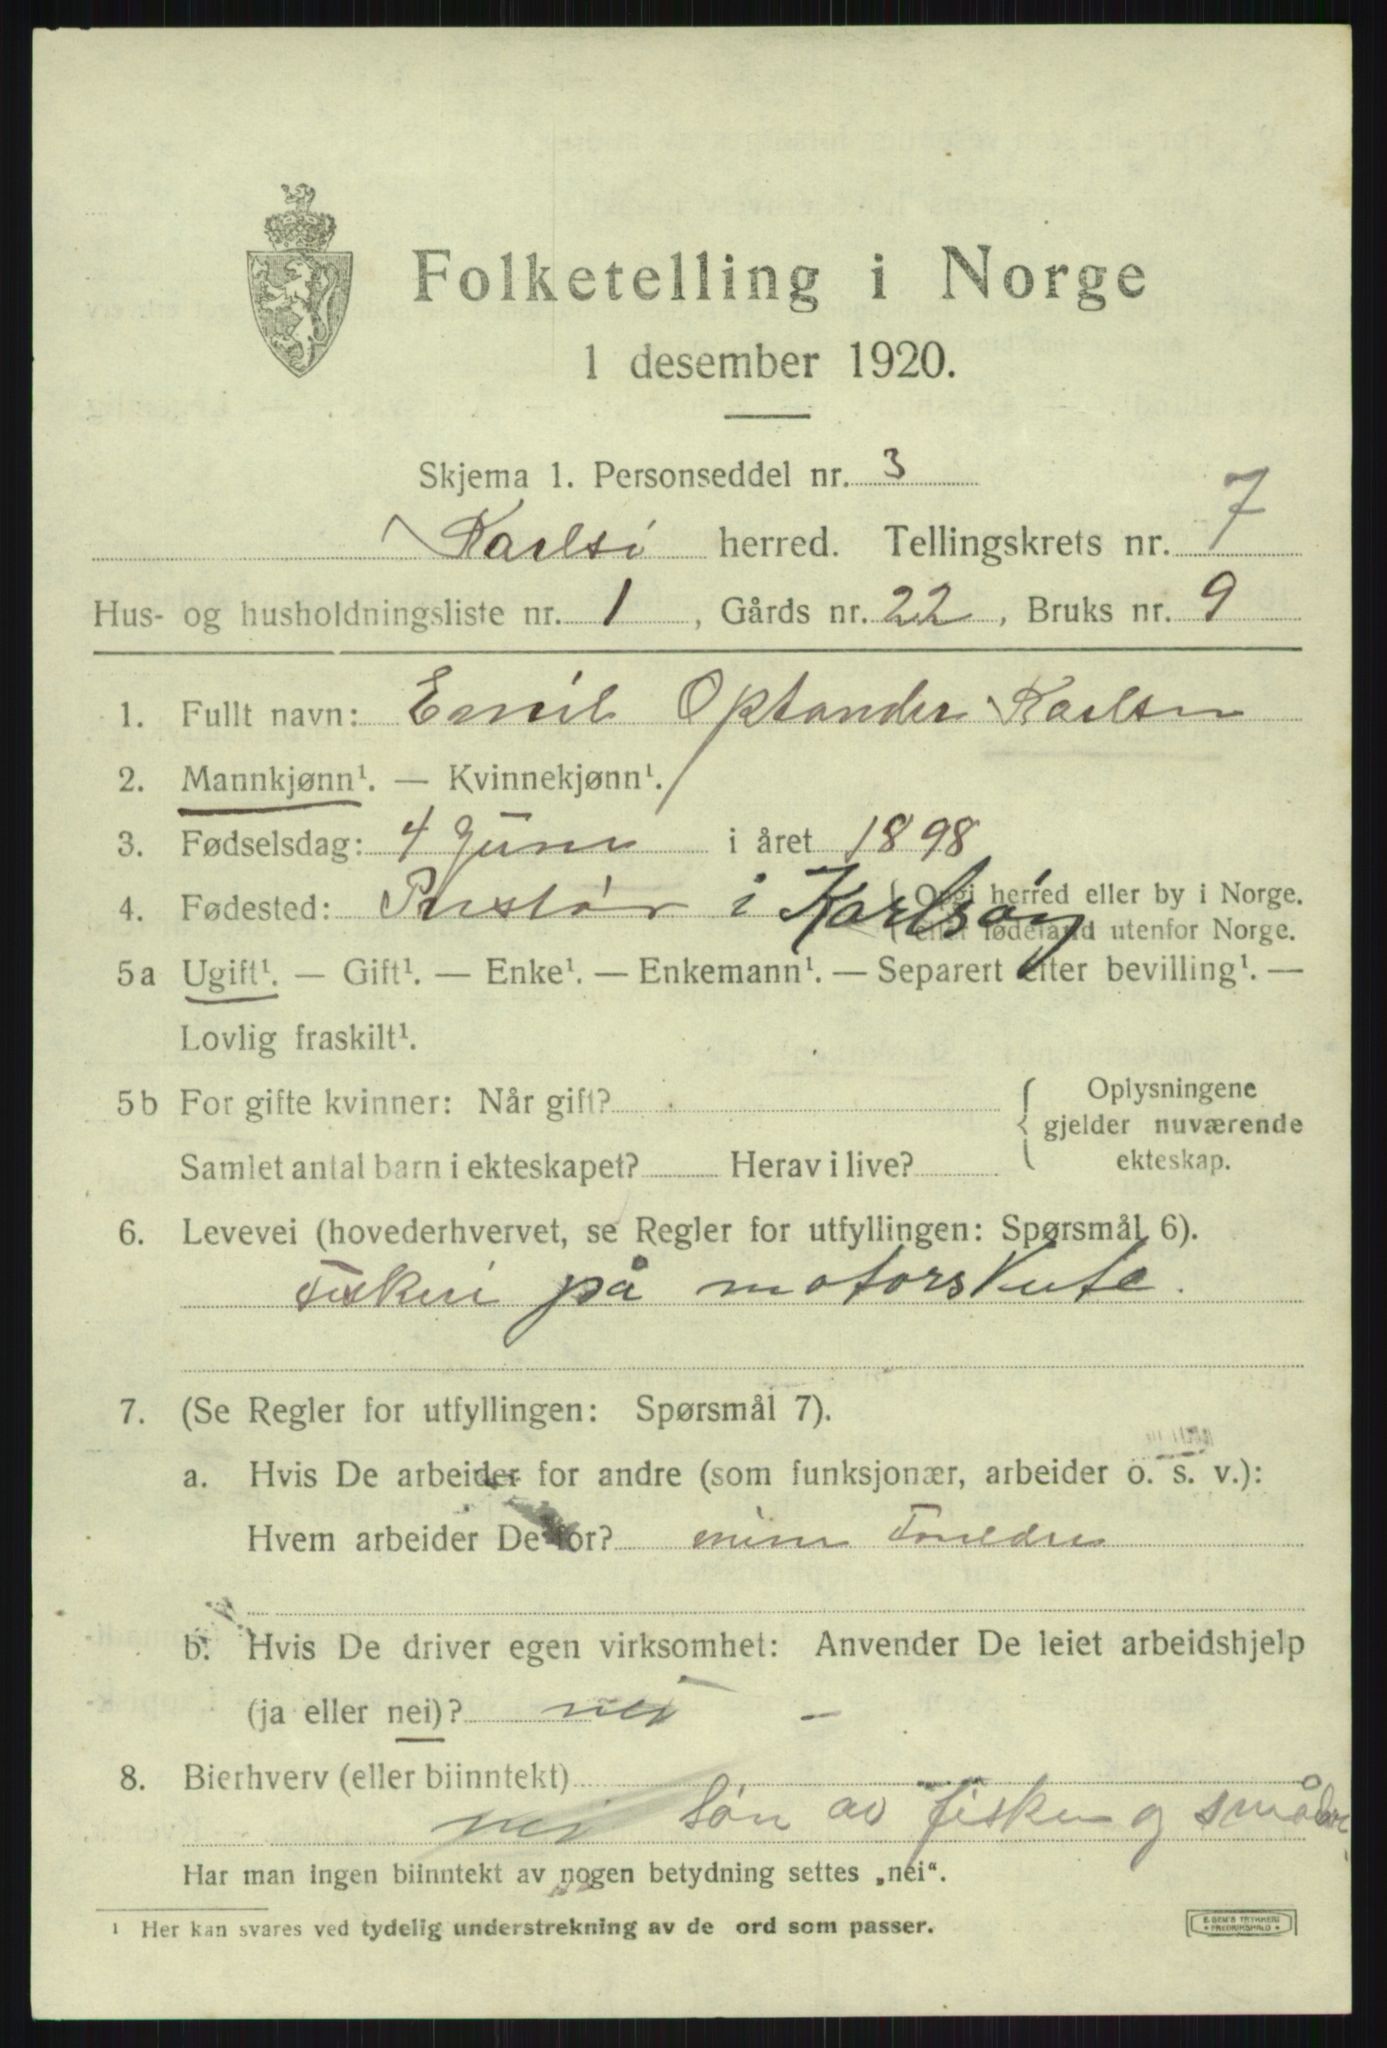 Folketelling i Norge
1 desember 1920.
Skjema 1. Personseddel nr. 3
Karlsö herred. Tellingskrets nr. 7
Hus- og husholdningsliste nr. 1, Gårds nr. 22, Bruks nr. 9
1. Fullt navn: Emil Optander Karlsen
2. Mannkjønn¹. — Kvinnekjønn¹.
3. Fødselsdag: 4 Juni i året 1898
4. Fødested: i Karlsøy (Opgi herred eller by i Norge.
eller fødeland utenfor Norge.
5a Ugift¹. — Gift¹. — Enke¹. — Enkemann¹. — Separert efter bevilling¹. —
Lovlig fraskilt¹.
5b For gifte kvinner: Når gift? { Oplysningene
gjelder nuværende
Samlet antal barn i ekteskapet? Herav i live? ekteskap.
6. Levevei (hovederhvervet, se Regler for utfyllingen: Spørsmål 6).
Fiskeri på motorskute.
7. (Se Regler for utfyllingen: Spørsmål 7).
a. Hvis De arbeider for andre (som funksjonær, arbeider o. s. v.):
Hvem arbeider De for? mine Foreldre
b. Hvis De driver egen virksomhet: Anvender De leiet arbeidshjelp
(ja eller nei)? nei -
8. Bierhverv (eller biinntekt)
nei Søn av fisker og småbr
Har man ingen biinntekt av nogen betydning settes „nei“.
¹ Her kan svares ved tydelig understrekning av de ord som passer.
E. SEM'S TRYKKERI
• FREDRIKSHALD •